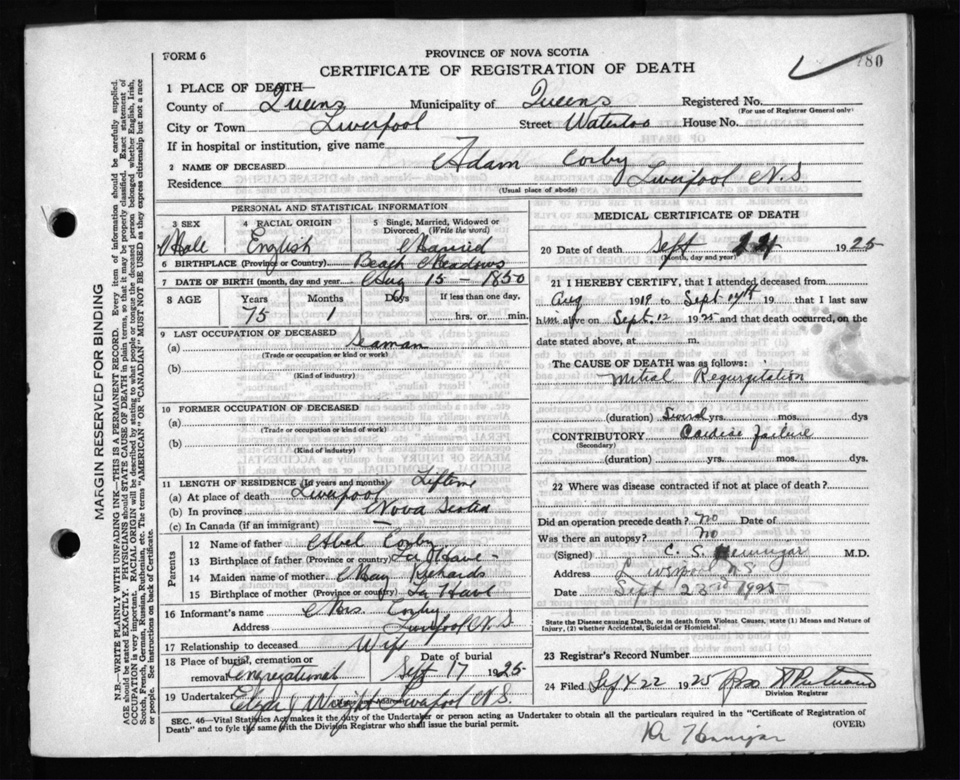 FORM 6
PROVINCE OF NOVA SCOTIA
CERTIFICATE OF REGISTRATION OF DEATH
780
1 PLACE OF DEATH—
County of Queens Municipality of Queens Registered No.
(For use of Registrar General only)
City or Town Liverpool Street Waterloo House No.
If in hospital or institution, give name
2 NAME OF DECEASED Adam Corby
Residence Liverpool N.S
(Usual place of abode)
PERSONAL AND STATISTICAL INFORMATION
3 SEX 4 RACIAL ORIGIN 5 Single, Married, Widowed or Divorced (Write the word)
Male English Married
6 BIRTHPLACE (Province or Country) Beach Meadows
7 DATE OF BIRTH (month, day and year) Aug 15 1850
8 AGE Years Months Days If less than one day,
75 1 hrs. or min.
9 LAST OCCUPATION OF DECEASED
(a) Seaman
(Trade or occupation or kind or work)
(b)
(Kind of industry)
10 FORMER OCCUPATION OF DECEASED
(a)
(Trade or occupation or kind or work)
(b)
(Kind of industry)
11 LENGTH OF RESIDENCE (In years and months) Lifetime
(a) At place of death Liverpool
(b) In province Nova Scotia
(c) In Canada (if an immigrant) —
Parents
12 Name of father Abel Corby
13 Birthplace of father (Province or country) La Have
14 Maiden name of mother May Richards
15 Birthplace of mother (Province or country) La Have
16 Informant's name Mrs. Corby
Address Liverpool N.S
17 Relationship to deceased Wife
18 Place of burial, cremation or removal Congregational Date of burial Sept 17 1925
19 Undertaker Wright Address Liverpool N.S.
MEDICAL CERTIFICATE OF DEATH
20 Date of death Sept 1925
(Month, day and year)
21 I HEREBY CERTIFY, that I attended deceased from
Aug 1919 to Sept 19 that I last saw
him alive on Sept. 12 1925 and that death occurred, on the
date stated above, at m.
The CAUSE OF DEATH was as follows:
Mitral Regurgitation
(duration) Several yrs. mos. dys
CONTRIBUTORY Cardiac failure
(Secondary)
(duration) yrs. mos. dys
22 Where was disease contracted if not at place of death?
Did an operation precede death? No Date of
Was there an autopsy? No
(Signed) C. S. Hennigar M.D.
Address Liverpool NS
Date Sept 23rd 1925
State the Disease causing Death, or in death from Violent Causes, state (1) Means and Nature of
Injury, (2) whether Accidental, Suicidal or Homicidal.
23 Registrar's Record Number
24 Filed Sept 22 1925
Division Registrar
SEC. 46—Vital Statistics Act makes it the duty of the Undertaker or person acting as Undertaker to obtain all the particulars required in the "Certificate of Registration of
Death" and to fyle the same with the Division Registrar who shall issue the burial permit.
(OVER)
Dr Hennigar
MARGIN RESERVED FOR BINDING
N.B.—WRITE PLAINLY WITH UNFADING INK—THIS IS A PERMANENT RECORD. Every item of information should be carefully supplied.
AGE should be stated EXACTLY. PHYSICIANS should STATE CAUSE OF DEATH in plain terms, so that it may be properly classified. Exact statement of
OCCUPATION is very important. RACIAL ORIGIN will be described by stating to what people or tongue the deceased person belonged whether English, Irish,
Scotch, French, German, Russian, Ruthenian, etc. The terms "AMERICAN" OR "CANADIAN" MUST NOT BE USED as they express citizenship but not a race
or people. See instructions on back of Certificate.